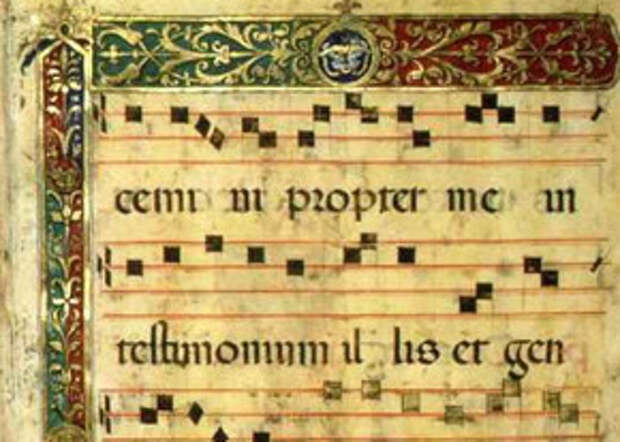 cemi ni propter me in
testimonium il lis et gen